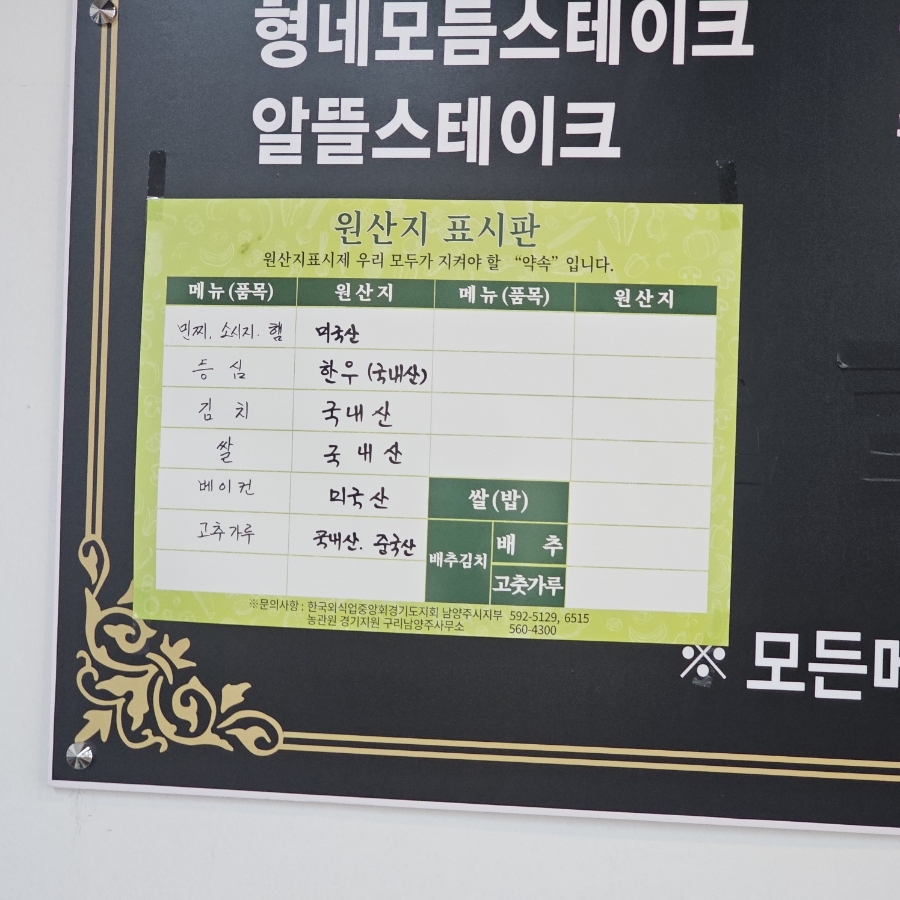 형네모듬스테이크
알뜰스테이크
원산지 표시판
원산지표시제 우리 모두가 지켜야 할 “약속” 입니다.
메뉴(품목) 원산지 메뉴(품목) 원산지
민찌, 소시지. 햄 미국산
등심 한우 (국내산)
김치 국내산
쌀 국내산
베이컨 미국산 쌀(밥)
고추가루 국내산. 중국산 배추김치 배 추
고춧가루
※문의사항 : 한국외식업중앙회경기도지회 남양주시지부 592-5129, 6515
농관원 경기지원 구리남양주사무소 560-4300
※ 모든메